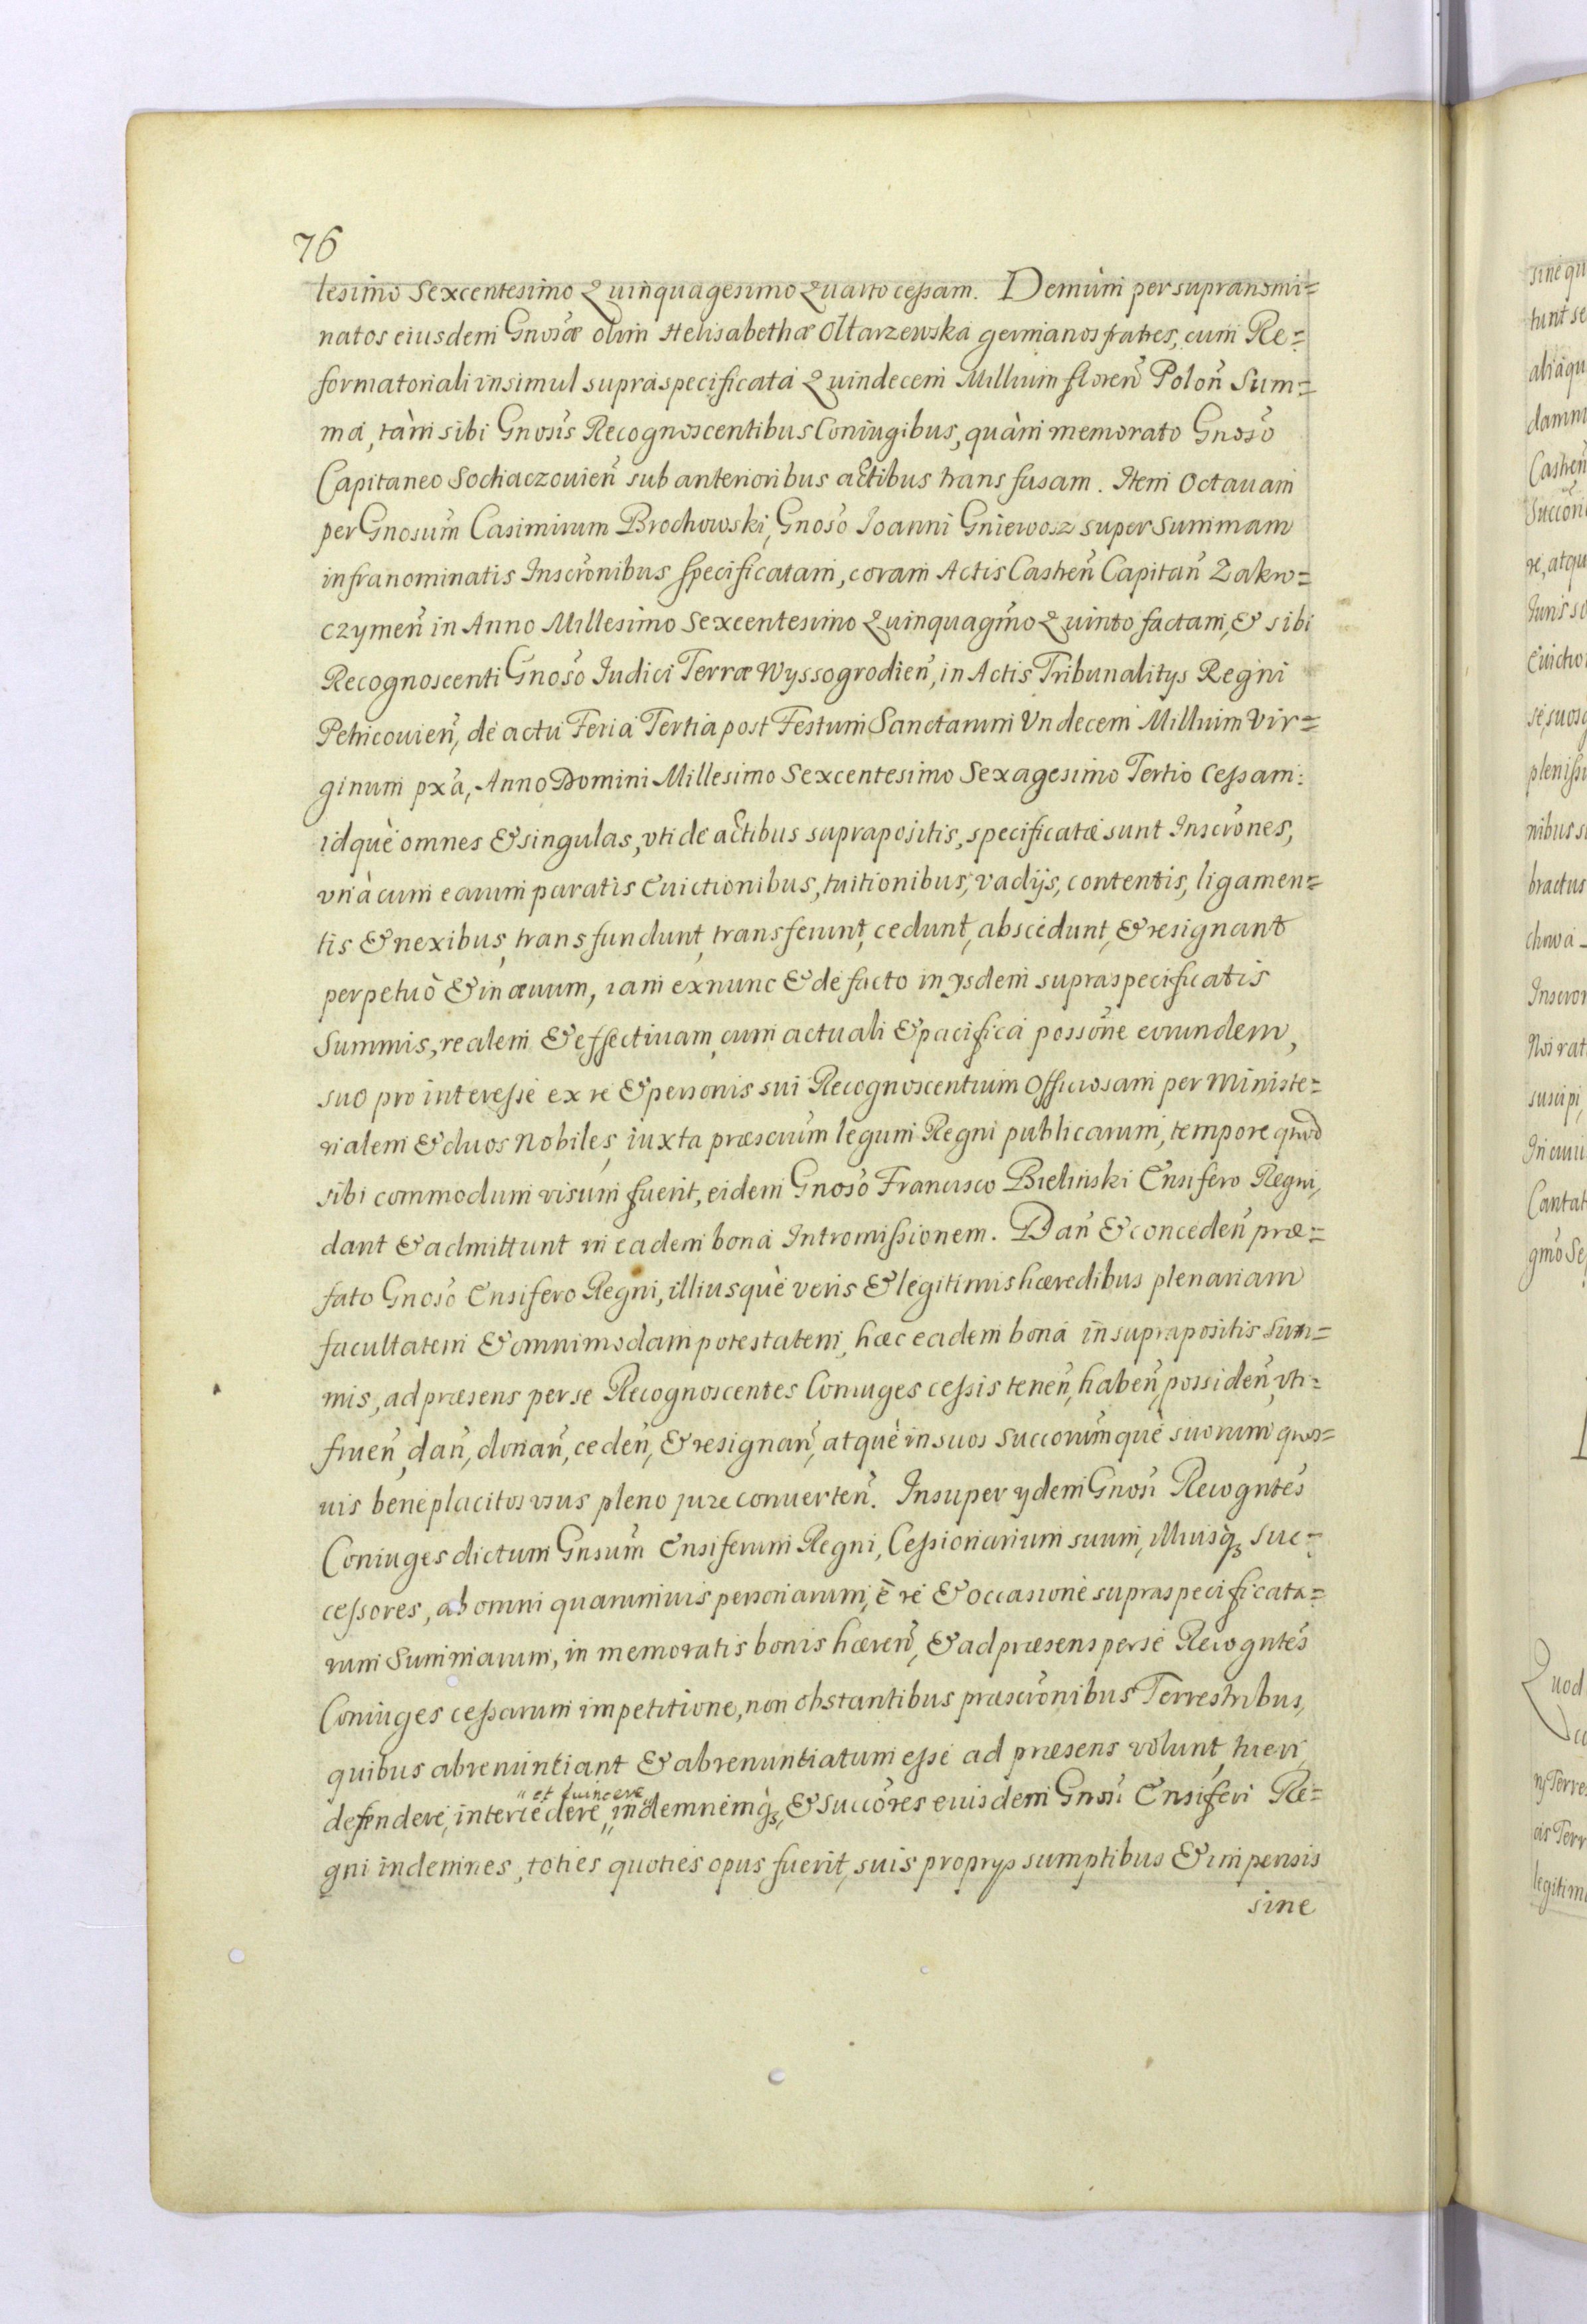 76
lesimo Sexcentesimo Quinquagesimo Quarto cessam. Demùm per supranomi=
natos eiusdem Gnosæ olim Helisabethæ Ołtarzewska germanos fratres, cum Re=
formatoriali insimul supraspecificata Quindecem Millium floreñ Poloñ Sum=
ma, tàm sibi Gnosis Recognoscentibus Coniugibus, quàm memorato Gnoso
Capitaneo Sochaczouieñ sub anterioribus actibus transfusam. Item Octauam
per Gnosum Casimirum Brochowski, Gnoso Ioanni Gniewosz super Summam
infranominatis Inscrönibus specificatam, coram Actis Castreñ Capitañ Zakro=
czymeñ in Anno Millesimo Sexcentesimo Quinquagmo Quinto factam, & sibi
Recognoscenti Gnoso Iudici Terræ Wyssogrodieñ, in Actis Tribunalitys Regni
Petricouieñ, de actu Feria Tertia post Festum Sanctarum Vndecem Millium Vir=
ginum pxa, Anno Domini Millesimo Sexcentesimo Sexagesimo Tertio Cessam:
idquè omnes & singulas, vti de actibus suprapositis, specificatæ sunt Inscrones,
vnà cum earum paratis Euictionibus, tuitionibus, vadijs, contentis, ligamen=
tis & nexibus, transfundunt, transferunt, cedunt, abscedunt, & resignant
perpetuò & in æuum, iam exnunc & de facto in ysdem supraspecificatis
Summis, realem & effectiuam, cum actuali & pacifica possone eorundem,
suo pro interesse ex re & personis sui Recognoscentium Officiosam per Ministe=
rialem & duos Nobiles, iuxta præscrium legum Regni publicarum, tempore quod
sibi commodum visum fuerit, eidem Gnoso Francisco Bieliński Ensifero Regni,
dant & admittunt in eadem bona Intromissionem. Dañ & concedeñ præ=
fato Gnoso Ensifero Regni, illiusquè veris & legitimis hæredibus plenariam
facultatem & omnimodam potestatem, hæc eadem bona in suprapositis Sum=
mis, ad præsens per se Recognoscentes Coniuges cessis teneñ, habeñ, possideñ, vti=
frueñ, dañ, donañ, cedeñ, & resignañ, atquè in suos Succorumquè suorum quos=
uis beneplacitos vsus pleno jure conuerteñ. Insuper ydem Gnosi Recogntes
Coniuges dictum Gnsum Ensiferum Regni, Cessionarium suum, illiusq3 Suc=
cessores, ab omni quarumuis personarum, è re & occasione supraspecificata=
rum Summarum, in memoratis bonis hæreñ, & ad præsens per se Recogntes
Coniuges cessarum impetitione, non obstantibus præscronibus Terrestribus,
quibus abrenuntiant & abrenuntiatum esse ad præsens volunt, tueri,
" et Euincere "
defendere, intercedere, " indemnemq3, & Succores eiusdem Gnosi Ensiferi Re=
gni indemnes, toties quoties opus fuerit, suis proprys sumptibus & impensis
sine